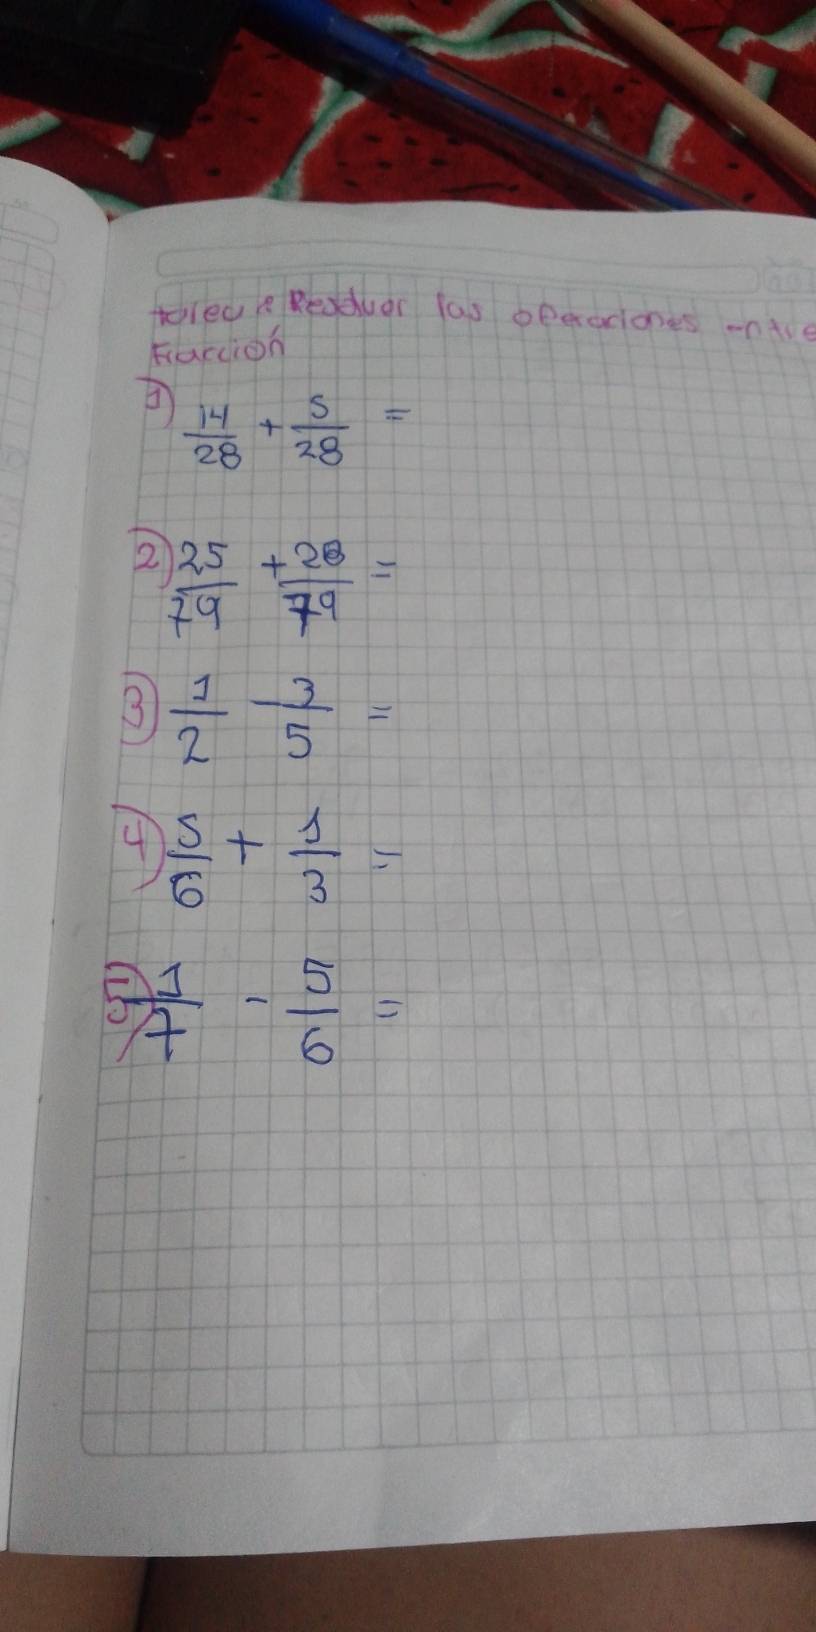 Resolver las operaciones entre
Fracción
1) 14/28 + 5/28 =
2) 25/79 + 28/79 =
3) 1/2 - 3/5 =
4) 5/6 + 1/3 =
5) 1/7 - 5/6 =